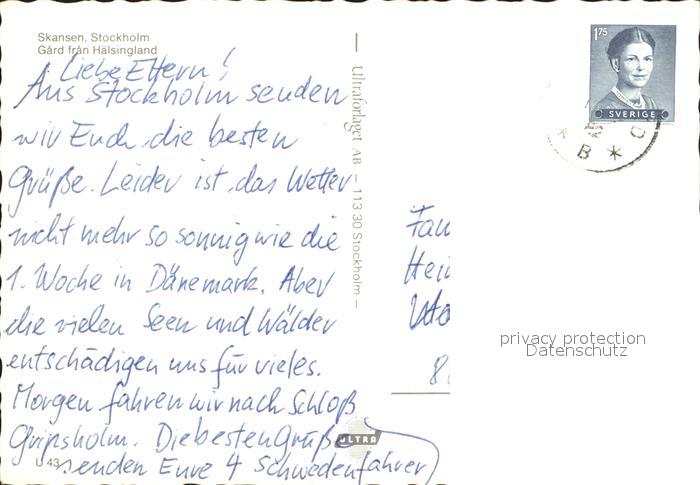 Skansen, Stockholm
Gård från Hälsingland
Liebe Eltern!
Aus Stockholm senden
wir Euch die besten
Grüße. Leider ist das Wetter
nicht mehr so sonnig wie die
1. Woche in Dänemark. Aber
die vielen Seen und Wälder
entschädigen uns für vieles.
Morgen fahren wir nach Schloß
Gripsholm. Die besten Grüße
senden Eure 4 Schwedenfahrer
U 43
ULTRA
Ultraförlaget AB – 113 30 Stockholm –
1 75
SVERIGE
B
Fam
Hei
8
privacy protection
Datenschutz